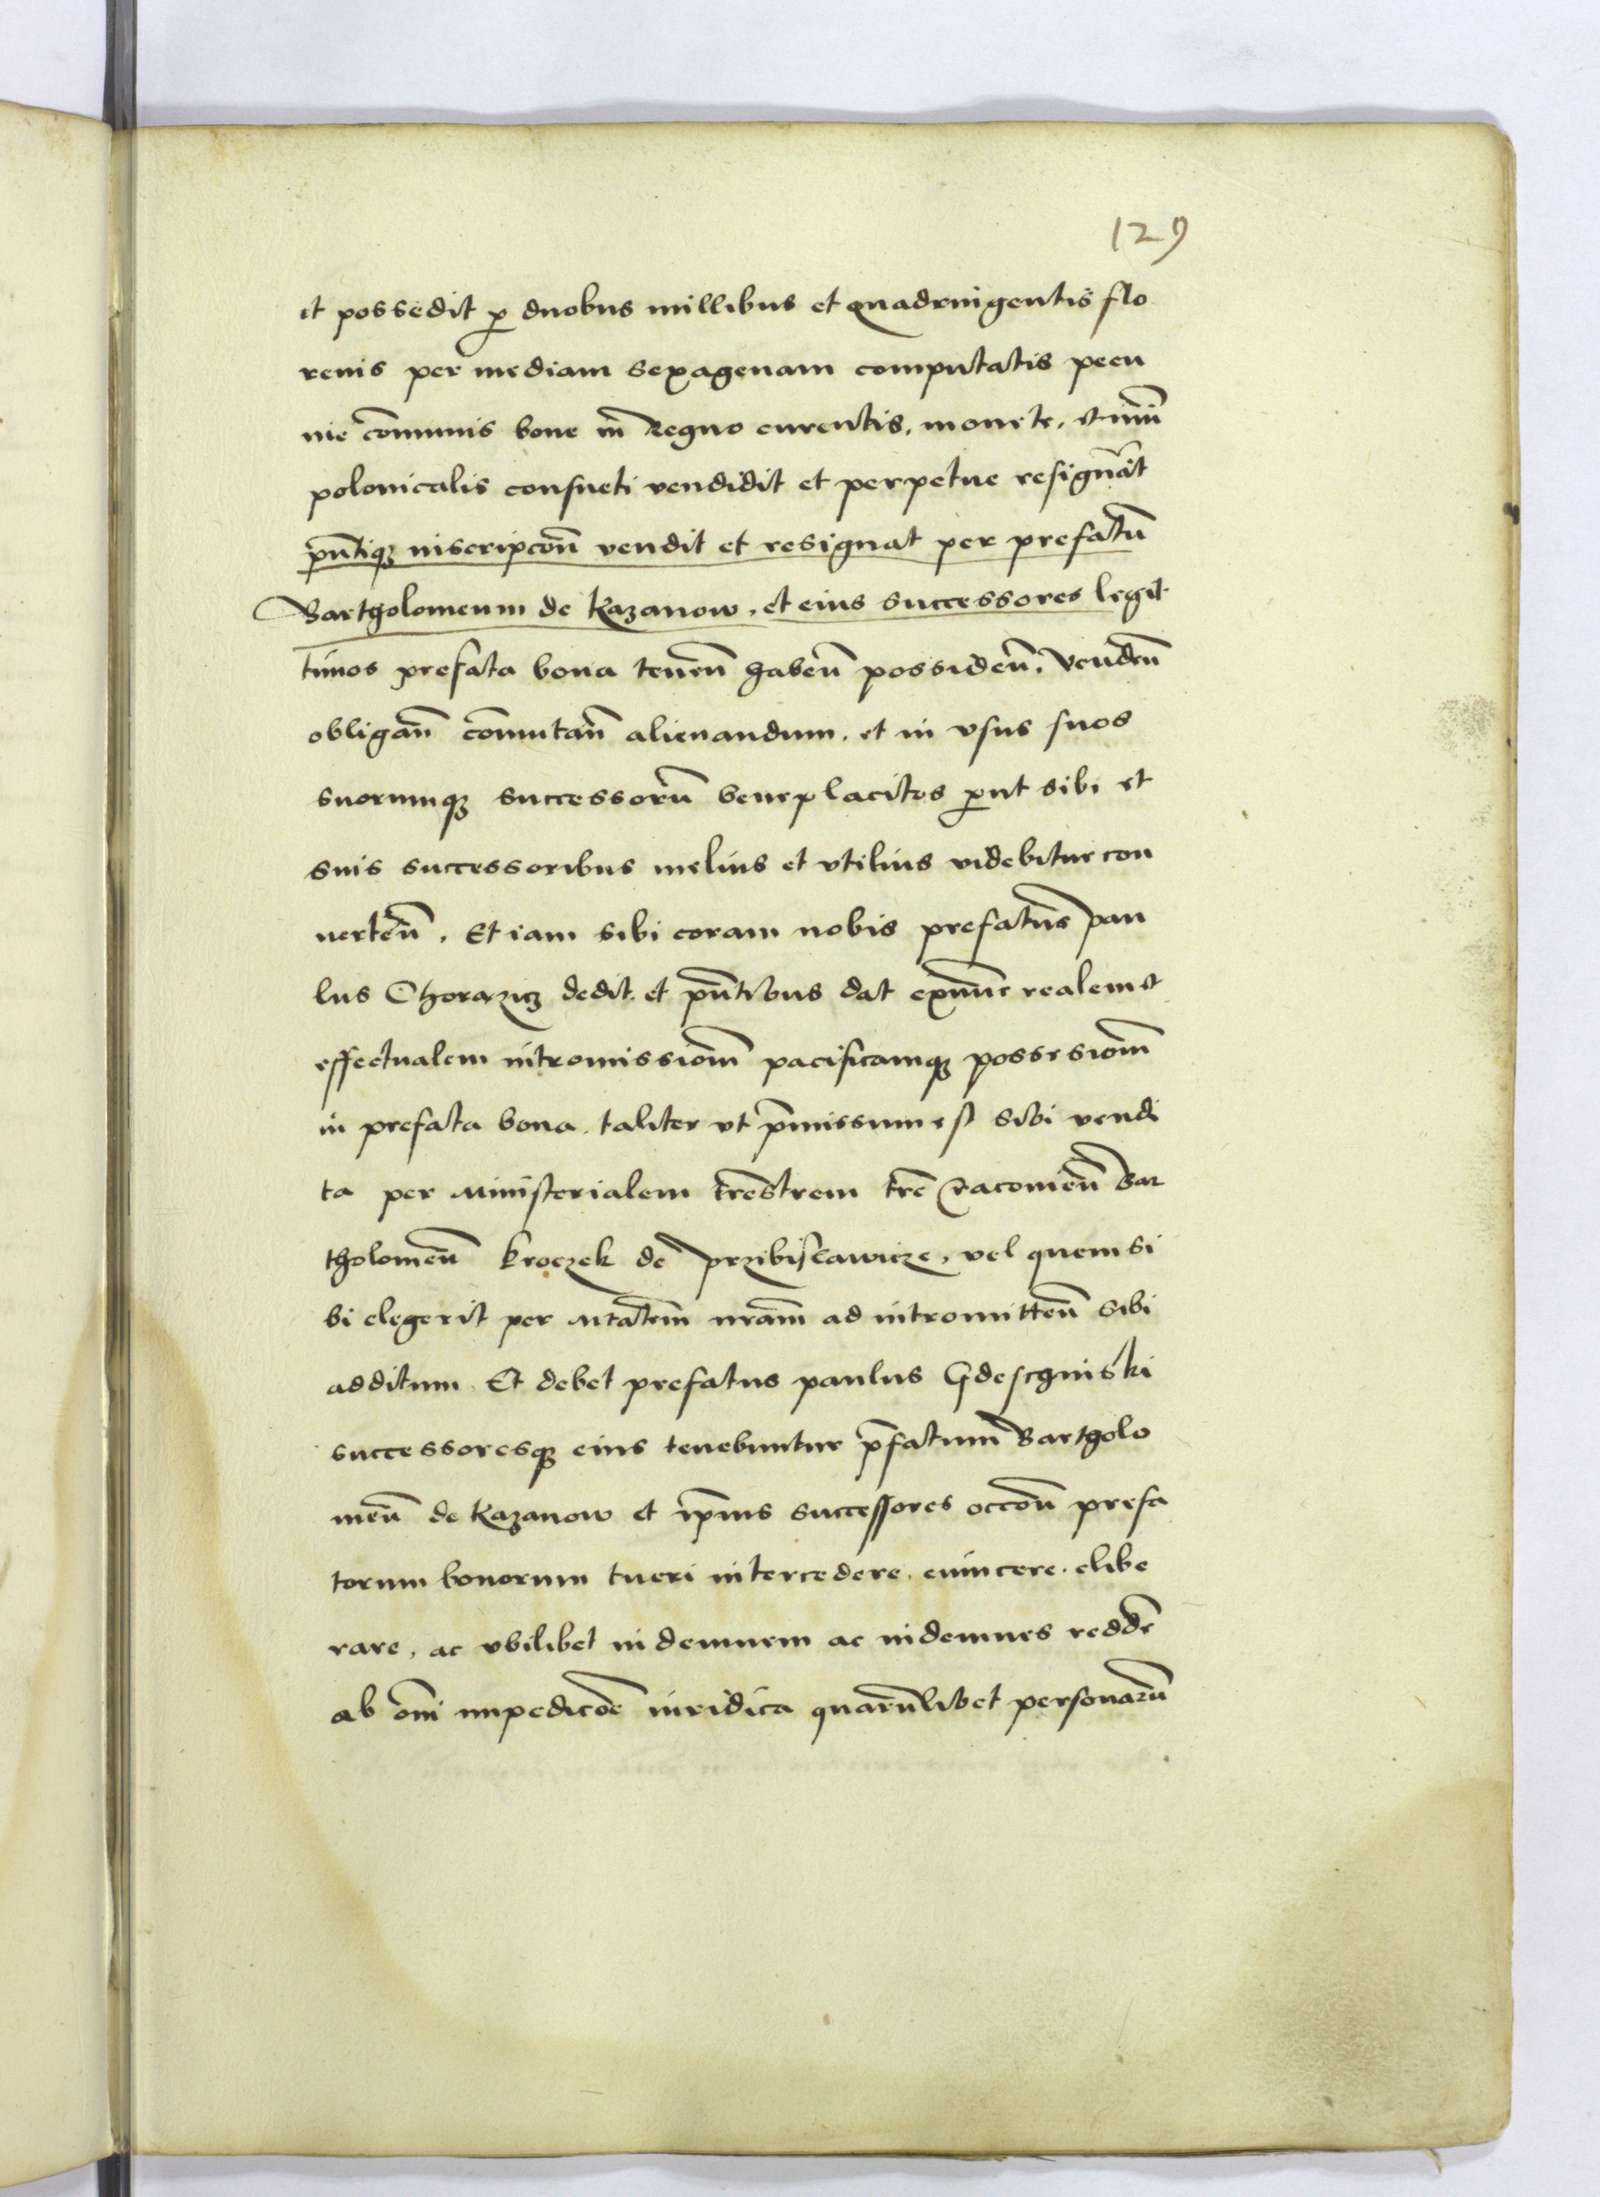 129
et possedit ꝑ duobus millibus et quadringentis flo
renis per mediam sexagenam computatis pecu
nie co͞munis bone in Regno curentis, monete, et nu͞m
polonicalis consueti vendidit et perpetue resigna͞it
pn͞tiqꝫ inscripco͞n vendit et resignat per prefatu͞
Bartholomeum de Kazanow, et eius successores legit
timos prefata bona tenen͞ haben͞ possiden͞, Venden͞
obligan͞ co͞mutan͞ alienandum, et in vsus suos
suorumqꝫ successoru͞ beneplacitos ꝓut sibi et
suis successoribus melius et vtilius videbitur con
uerten͞. Et iam sibi coram nobis prefatus pau
lus Chorazicz dedit, et pn͞tibus dat exnunc realem et
effectualem intromissiom͞ pacificamqꝫ possesiom͞
in prefata bona taliter vt p͞missum est sibi vendi
ta per Ministerialem tr͞estrem tr͞e Racomien͞ Bar
tholomeu͞ Kroczek de Przibislawicze, vel quem si
bi elegerit per Mtate͞m nra͞m ad intromitten͞ sibi
additum. Et debet prefatus paulus Gdeschinski
successoresqꝫ eius tenebuntur p͞fatum Bartholo
meu͞ de Kazanow et ip͞ius successores occo͞n prefa
torum bonorum tueri intercedere, euincere, elibe
rare, ac vbilibet indemnem ac indemnes redde͞
ab om͞i impedico͞e iuridica quaru͞libet personaru͞